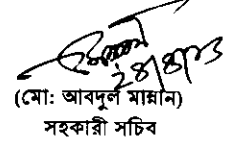 ২৪/৪/২৩
(মো: আবদুল মান্নান)
সহকারী সচিব